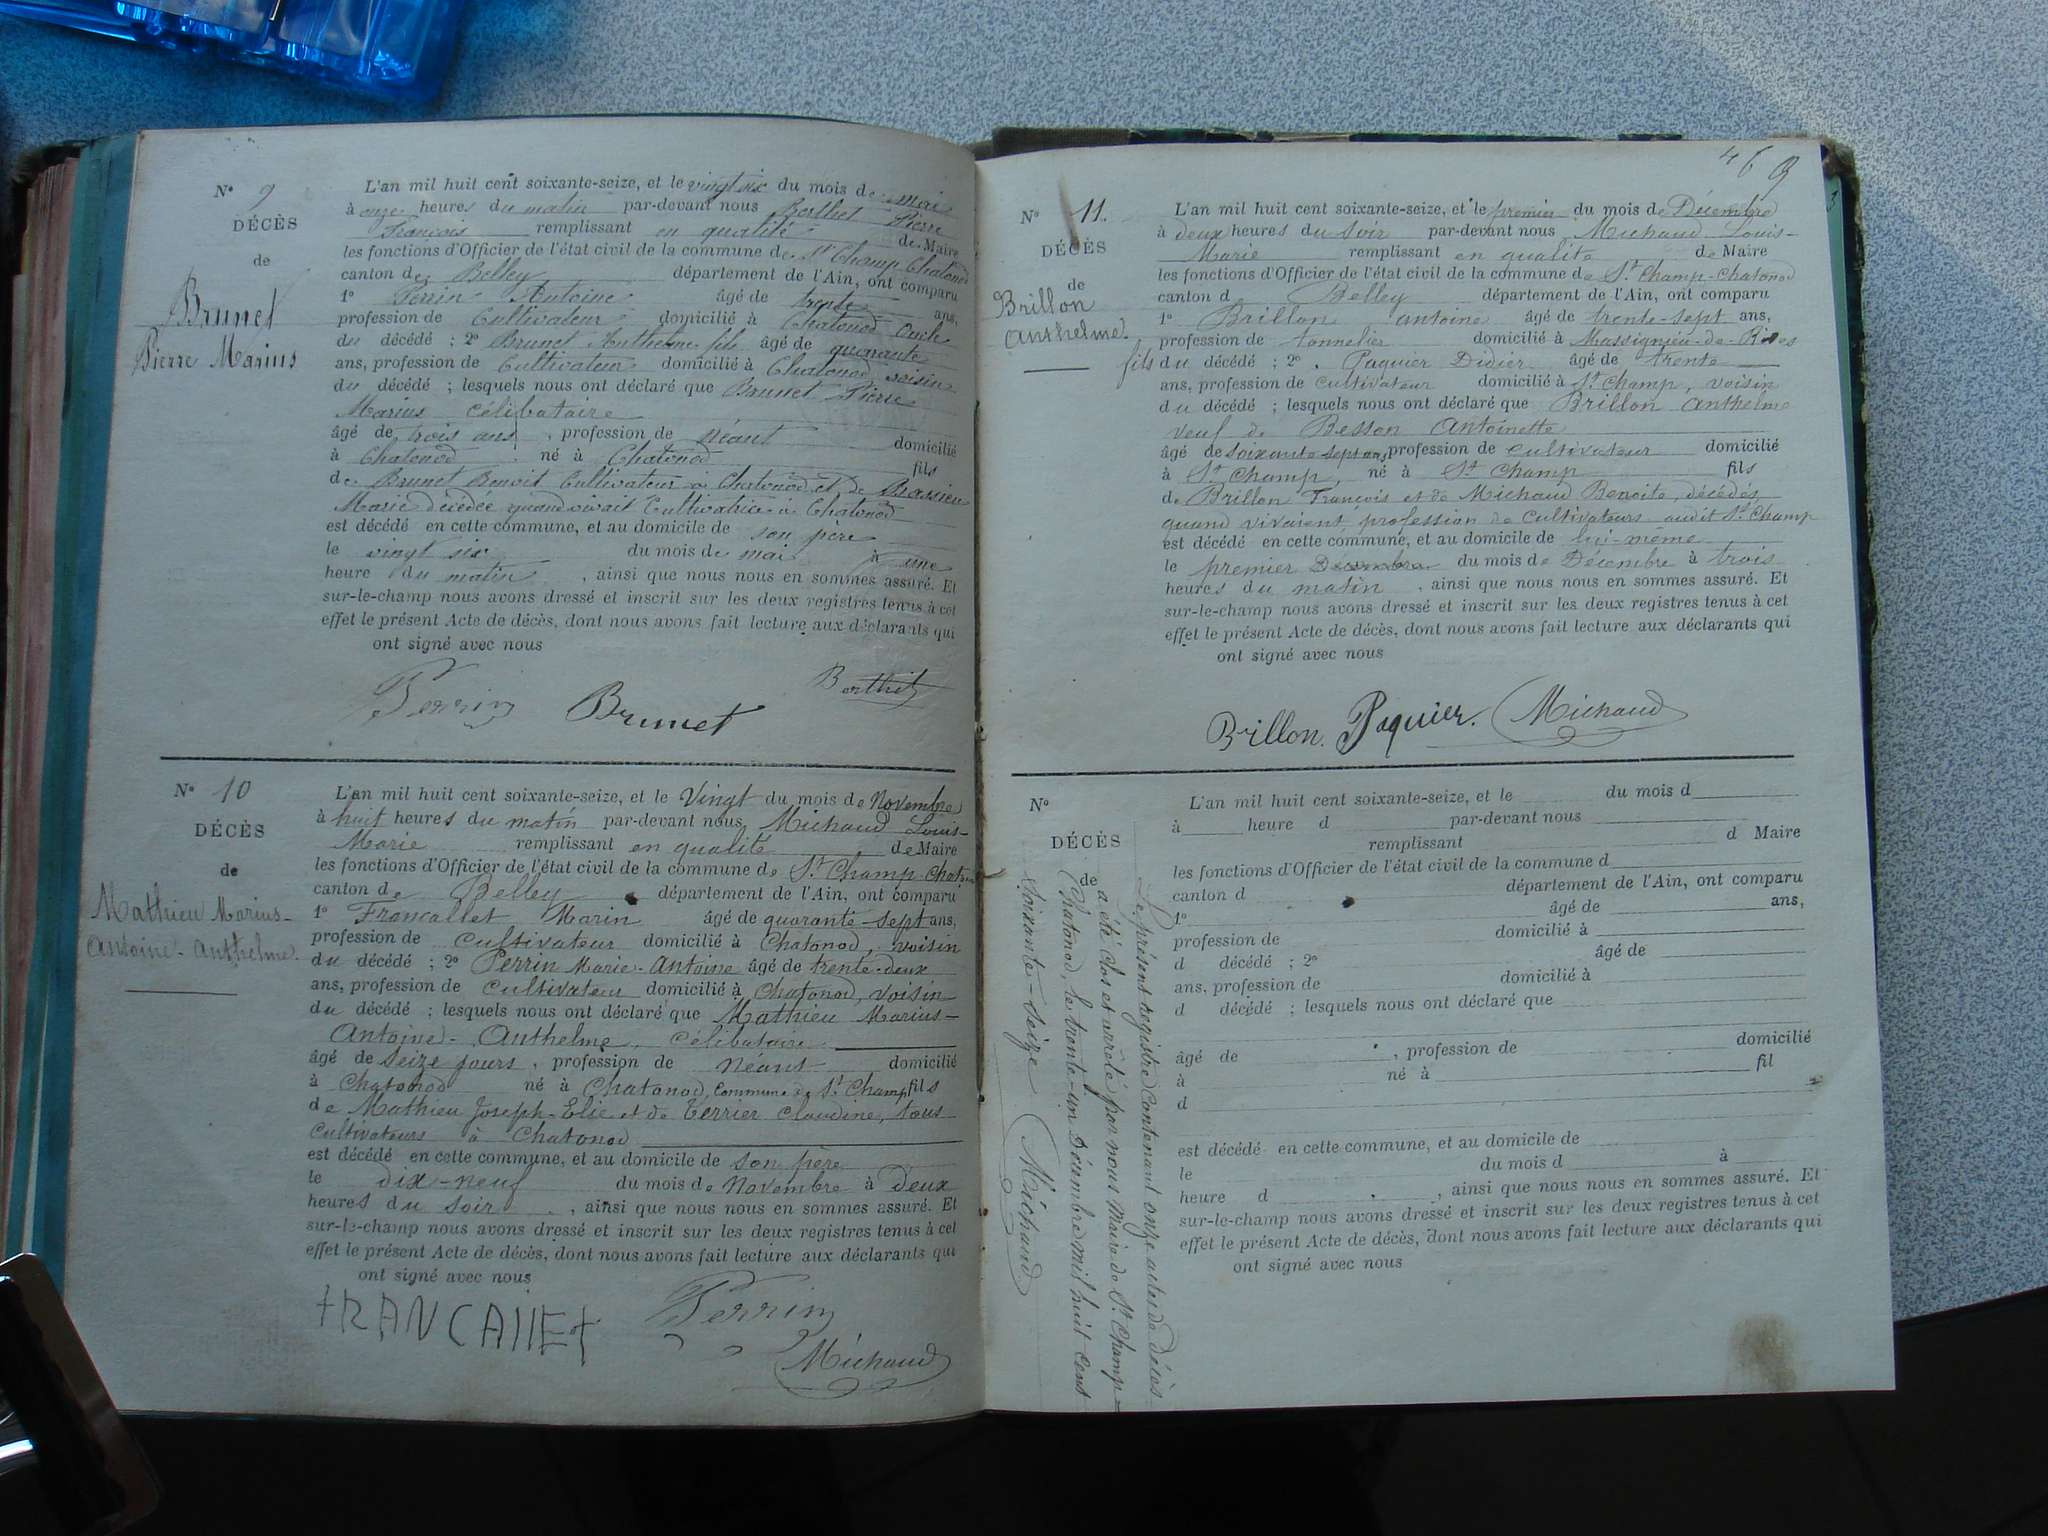 N° 9
DÉCÈS
de
Brunet
Pierre Marius
L'an mil huit cent soixante-seize, et le vingt six du mois de mai
à onze heures du matin par-devant nous Berthet Pierre
François remplissant en qualité de Maire
les fonctions d'Officier de l'état civil de la commune de St Champ Chatonod
canton de Belley département de l'Ain, ont comparu
1° Perrin Antoine âgé de trente ans,
profession de Cultivateur domicilié à Chatonod Oncle
du décédé ; 2° Brunet Anthelme fils âgé de quarante
ans, profession de Cultivateur domicilié à Chatonod voisin
du décédé ; lesquels nous ont déclaré que Brunet Pierre
Marius célibataire
âgé de trois ans, profession de néant domicilié
à Chatonod né à Chatonod fils
de Brunet Benoit Cultivateur à Chatonod et de
Marie décédée quand vivait Cultivatrice à Chatonod
est décédé en cette commune, et au domicile de son père
le vingt six du mois de mai à une
heure du matin, ainsi que nous nous en sommes assuré. Et
sur-le-champ nous avons dressé et inscrit sur les deux registres tenus à cet
effet le présent Acte de décès, dont nous avons fait lecture aux déclarants qui
ont signé avec nous
Perrin Brunet Berthet
N° 10
DÉCÈS
de
Mathieu Marius-
Antoine-Anthelme.
L'an mil huit cent soixante-seize, et le Vingt du mois de Novembre
à huit heures du matin par-devant nous Michaud Louis-
Marie remplissant en qualité de Maire
les fonctions d'Officier de l'état civil de la commune de St Champ-Chaton
canton de Belley département de l'Ain, ont comparu
1° Francallet Marin âgé de quarante-sept ans,
profession de cultivateur domicilié à Chatonod, voisin
du décédé ; 2° Perrin Marie-Antoine âgé de trente-deux
ans, profession de cultivateur domicilié à Chatonod, voisin
du décédé ; lesquels nous ont déclaré que Mathieu Marius-
Antoine-Anthelme, célibataire
âgé de seize jours, profession de néant domicilié
à Chatonod né à Chatonod, Commune de St Champ fils
de Mathieu Joseph-Elie et de Terrier Claudine, tous
cultivateurs à Chatonod
est décédé en cette commune, et au domicile de son père
le dix-neuf du mois de Novembre à deux
heures du soir, ainsi que nous nous en sommes assuré. Et
sur-le-champ nous avons dressé et inscrit sur les deux registres tenus à cet
effet le présent Acte de décès, dont nous avons fait lecture aux déclarants qui
ont signé avec nous
FRANCAllEt Perrin
Michaud
N° 11.
DÉCÈS
de
Brillon
Anthelme.
L'an mil huit cent soixante-seize, et le premier du mois de Décembre
à deux heures du soir par-devant nous Michaud Louis-
Marie remplissant en qualité de Maire
les fonctions d'Officier de l'état civil de la commune de St Champ-Chatonod
canton d Belley département de l'Ain, ont comparu
1° Brillon antoine âgé de trente-sept ans,
profession de tonnelier domicilié à Massignieu-de-Rives
fils du décédé ; 2° Paquier Didier âgé de trente
ans, profession de cultivateur domicilié à St Champ, voisin
du décédé ; lesquels nous ont déclaré que Brillon Anthelme
veuf de Besson Antoinette
âgé de soixante-sept ans, profession de cultivateur domicilié
à St Champ, né à St Champ fils
de Brillon François et de Michaud Benoite, décédés,
quand vivaient profession de cultivateurs audit St Champ
est décédé en cette commune, et au domicile de lui-même
le premier Décembre du mois de Décembre à trois
heures du matin, ainsi que nous nous en sommes assuré. Et
sur-le-champ nous avons dressé et inscrit sur les deux registres tenus à cet
effet le présent Acte de décès, dont nous avons fait lecture aux déclarants qui
ont signé avec nous
Brillon. Paquier. Michaud
N°
DÉCÈS
de
Le présent registre Contenant onze actes de décès
a été clos et arrêté par nous Maire de St Champ-
Chatonod, le trente-un Décembre mil huit cent
soixante-seize Michaud
L'an mil huit cent soixante-seize, et le du mois d
à heure d par-devant nous
remplissant d Maire
les fonctions d'Officier de l'état civil de la commune d
canton d département de l'Ain, ont comparu
1° âgé de ans,
profession de domicilié à
d décédé ; 2° âgé de
ans, profession de domicilié à
d décédé ; lesquels nous ont déclaré que
âgé de , profession de domicilié
à né à fil
d
est décédé en cette commune, et au domicile de
le du mois d à
heure d , ainsi que nous nous en sommes assuré. Et
sur-le-champ nous avons dressé et inscrit sur les deux registres tenus à cet
effet le présent Acte de décès, dont nous avons fait lecture aux déclarants qui
ont signé avec nous